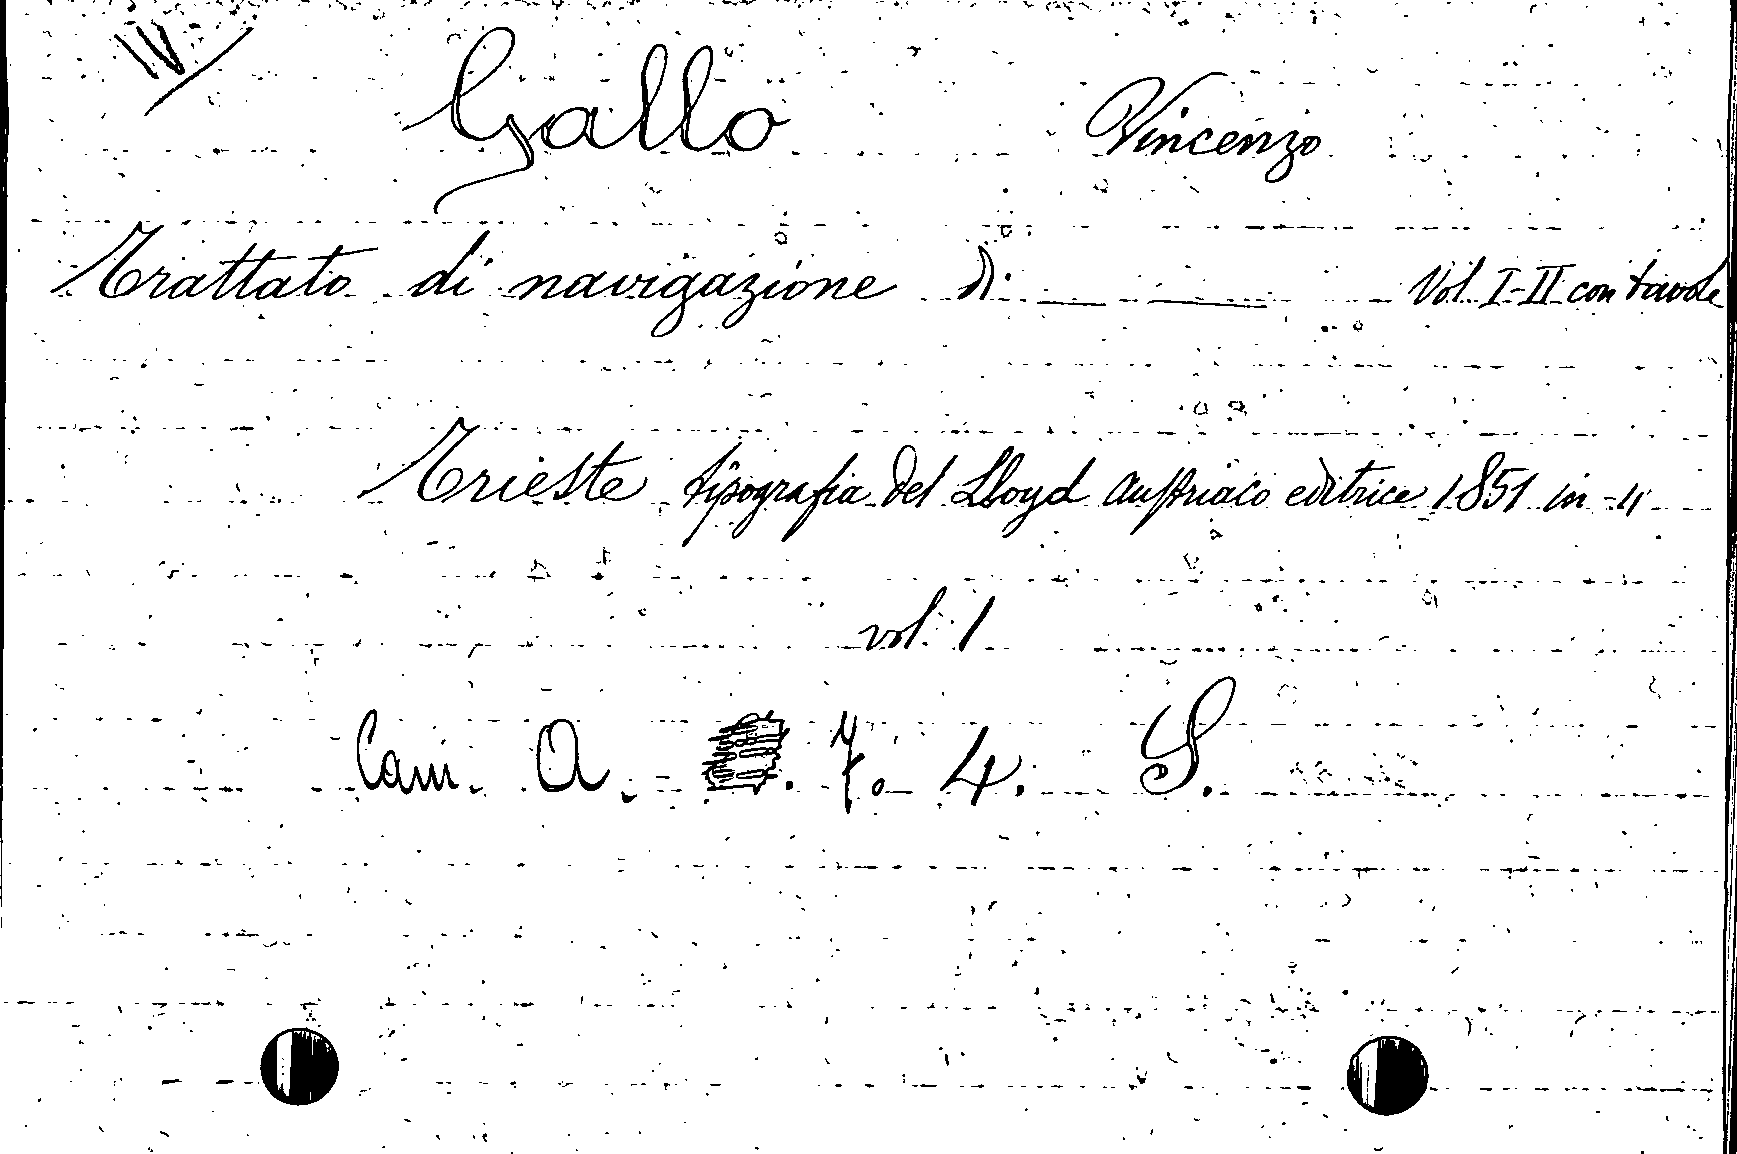 IV/
Gallo Vincenzo
Trattato di navigazione di — — Vol. I-II con tavole
Trieste tipografia del Lloyd austriaco editrice 1851 in-4
vol. 1
Cam. A. 7. 4. S.